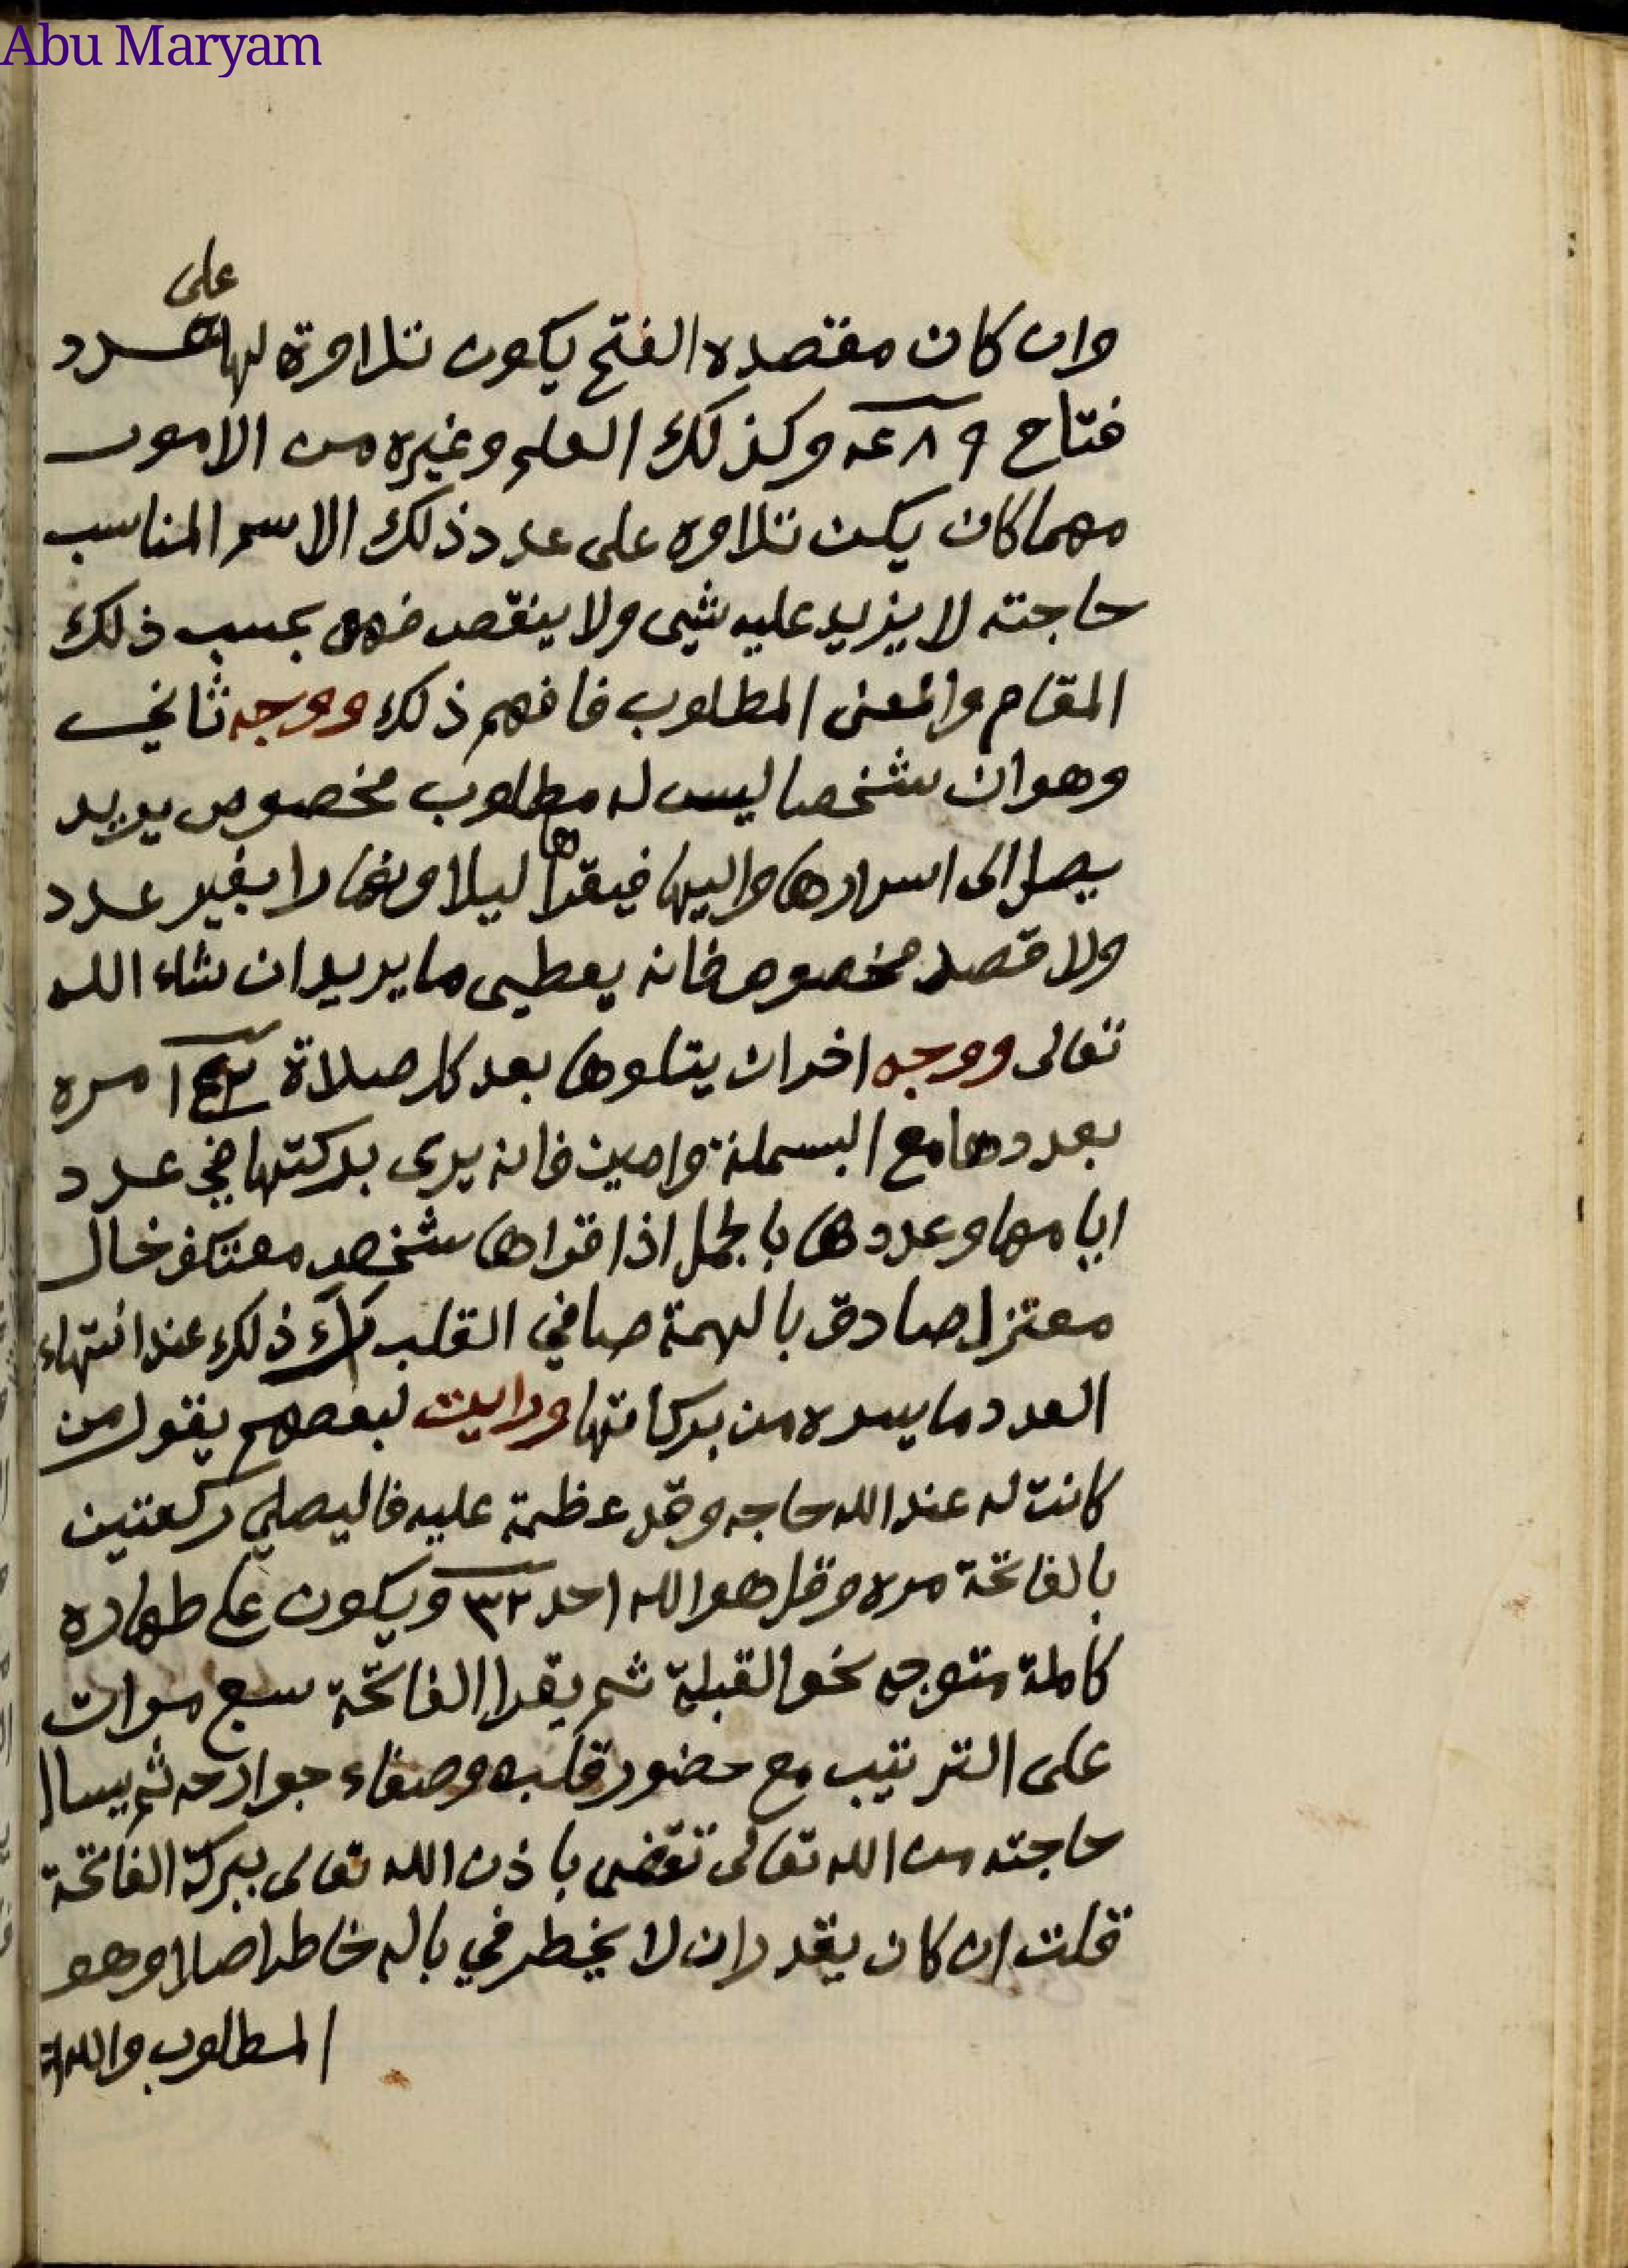 Abu Maryam
على
وان كان مقتصده الفتح يكون تلاوة لها عدد
فتاح ٤٨٩ وكذلك العلم وغيره من الامور
مهما كان يكن تلاوه على عدد ذلك الاسم المناسب
حاجته لا يزيد عليه شيى ولا ينقص فهو بحسب ذلك
المقام والمعنى المطلوب فافهم ذلك ووجه ثاني
وهو ان شخصا ليس له مطلوب مخصوص يريد
يصل الى اسرارها واليها فيقراها ليلا ونهارا بغير عدد
ولا قصد مخصوص فانه يعطيى ما يريد ان شاء الله
تعالى ووجه اخر ان يتلوها بعد كل صلاة مره
بعددها مع البسملة وامين فانه يرى بركتها في عدد
ايامها وعددها بالجمل اذا قراها شخص معتكف خال
معتزل صادق بالهمة صافي القلب ذلك عند انتهاء
العدد ما يسره من بركاتها ورايت لبعضهم يقول من
كانت له عند الله حاجه وقد عظمة عليه فاليصلي ركعتين
بالفاتحة مره وقل هو الله احد ٣٢ ويكون على طهاره
كاملة متوجه نحو القبلة ثم يقرا الفاتحة سبع مرات
على الترتيب مع حضور قلبه وصفاء جوارحه ثم يسال
حاجته من الله تعالى تقضى باذن الله تعالى ببركة الفاتحة
قلت ان كان يقدر ان لا يخطر في باله خاطر اصلا وهو
المطلوب والله